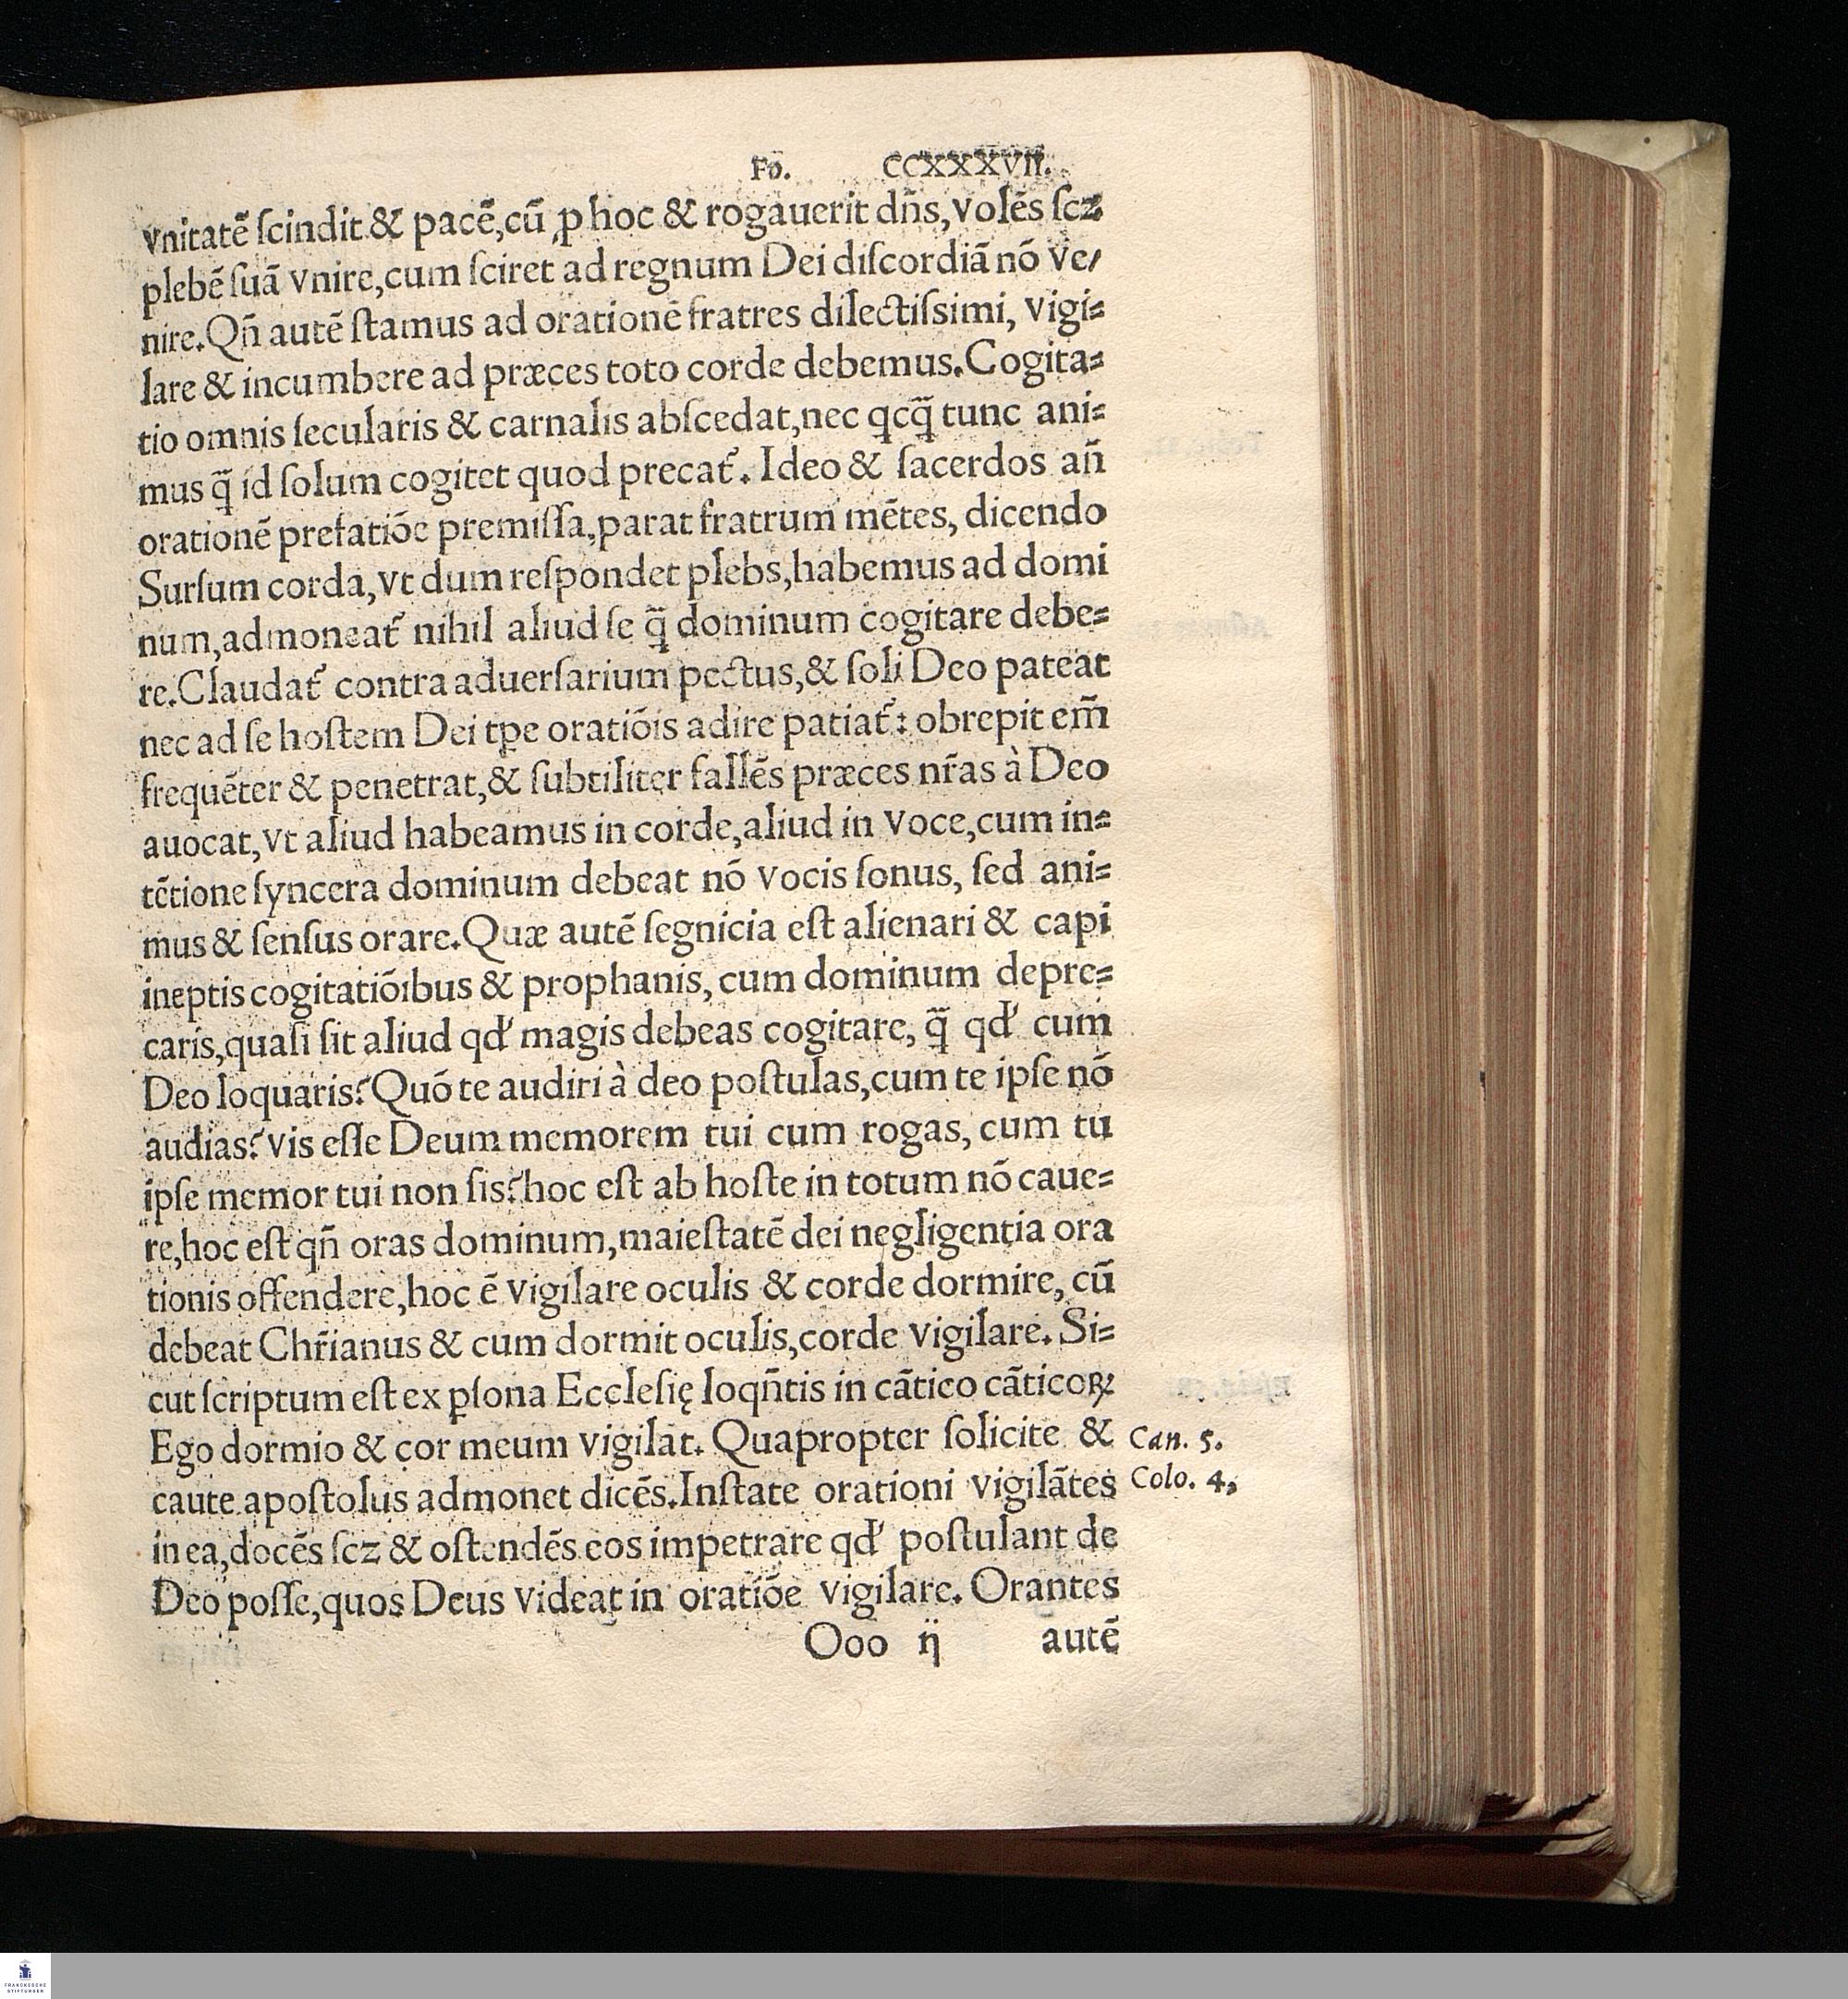 Fo. CCXXXVII.
vnitatē ſcindit & pacē,cū ꝓ hoc & rogauerit dñs,volēs ſcꝫ
plebē ſuā vnire,cum ſciret ad regnum Dei diſcordiā nō ve/
nire.Qñ autē ſtamus ad orationē fratres dilectiſsimi, vigi⸗
lare & incumbere ad præces toto corde debemus.Cogita⸗
tio omnis ſecularis & carnalis abſcedat,nec qcꝗ̃ tunc ani⸗
mus ꝗ̃ id ſolum cogitet quod precat᷑. Ideo & ſacerdos añ
orationē prefatiōe premiſſa,parat fratrum mētes, dicendo
Surſum corda,vt dum reſpondet plebs,habemus ad domi
num,admoneat᷑ nihil aliud ſe ꝗ̃ dominum cogitare debe⸗
re.Claudat᷑ contra aduerſarium pectus,& ſoli Deo pateat
nec ad ſe hoſtem Dei tꝑe oratiōis adire patiat᷑: obrepit em̃
frequēter & penetrat,& ſubtiliter fallēs præces nr̃as à Deo
auocat,vt aliud habeamus in corde,aliud in voce,cum in⸗
tētione ſyncera dominum debeat nō vocis ſonus, ſed ani⸗
mus & ſenſus orare.Quæ autē ſegnicia eſt alienari & capi
ineptis cogitatiōibus & prophanis, cum dominum depre⸗
caris,quaſi ſit aliud qd' magis debeas cogitare, ꝗ̃ qd' cum
Deo loquaris?Quō te audiri à deo poſtulas,cum te ipſe nō
audias?vis eſſe Deum memorem tui cum rogas, cum tu
ipſe memor tui non ſis?hoc eſt ab hoſte in totum nō caue⸗
re,hoc eſt qñ oras dominum,maieſtatē dei negligentia ora
tionis offendere,hoc ē vigilare oculis & corde dormire, cū
debeat Chr̃ianus & cum dormit oculis,corde vigilare. Si⸗
cut ſcriptum eſt ex ꝑſona Eccleſię loqñtis in cātico cāticoꝝ
Ego dormio & cor meum vigilat. Quapropter ſolicite & Can. 5.
caute apoſtolus admonet dicēs.Inſtate orationi vigilātes Colo. 4,
in ea,docēs ſcz & oſtendēs eos impetrare qd' poſtulant de
Deo poſſe,quos Deus videat in oratiōe vigilare. Orantes
Ooo ij autē
FRANCKESCHE
STIFTUNGEN